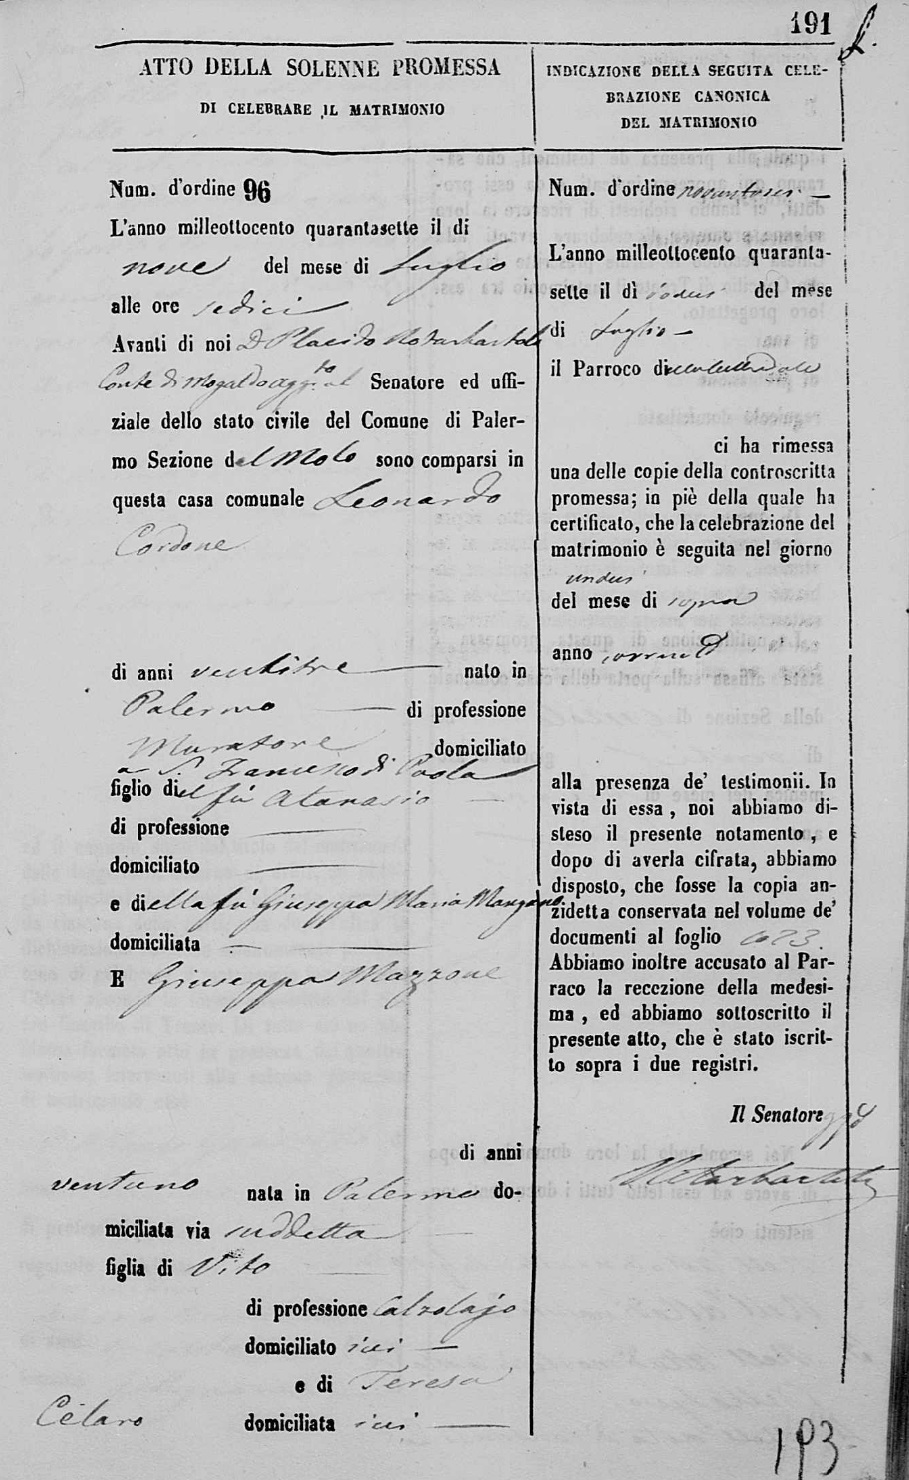 191
ATTO DELLA SOLENNE PROMESSA
DI CELEBRARE IL MATRIMONIO
Num. d'ordine 96
L'anno milleottocento quarantasette il di
nove del mese di Luglio
alle ore sedici
Avanti di noi D Placido Notarbartolo
Conte di Mogaldo aggto al Senatore ed uffi-
ziale dello stato civile del Comune di Paler-
mo Sezione del Molo sono comparsi in
questa casa comunale Leonardo
Cordone
di anni ventitre nato in
Palermo di professione
Muratore domiciliato
a S. Francesco di Paola
figlio di el fù Atanasio
di professione
domiciliato
e di ella fù Giuseppa Maria Mangano
domiciliata
E Giuseppa Mazzone
di anni
ventuno nata in Palermo do-
miciliata via suddetta
figlia di Vito
di professione Calzolajo
domiciliato ivi
e di Teresa
Celaro domiciliata ivi
INDICAZIONE DELLA SEGUITA CELE-
BRAZIONE CANONICA
DEL MATRIMONIO
Num. d'ordine novantasei
L'anno milleottocento quaranta-
sette il dì del mese
di Luglio
il Parroco della Cattedrale
ci ha rimessa
una delle copie della controscritta
promessa; in piè della quale ha
certificato, che la celebrazione del
matrimonio è seguita nel giorno
undici
del mese di sopra
anno corrente
alla presenza de' testimonii. In
vista di essa, noi abbiamo di-
steso il presente notamento, e
dopo di averla cifrata, abbiamo
disposto, che fosse la copia an-
zidetta conservata nel volume de'
documenti al foglio
Abbiamo inoltre accusato al Par-
raco la recezione della medesi-
ma, ed abbiamo sottoscritto il
presente atto, che è stato iscrit-
to sopra i due registri.
Il Senatore
Notarbartolo
193